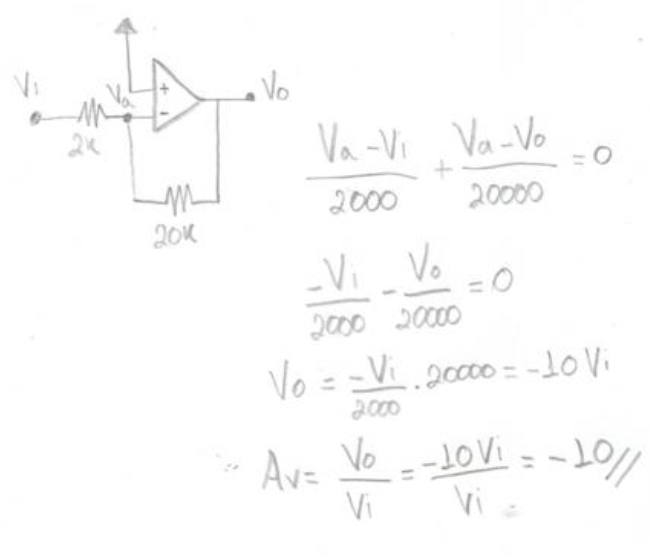 Vi Va + Vo
2K -
20K
Va - Vi / 2000 + Va - Vo / 20000 = 0
-Vi / 2000 - Vo / 20000 = 0
Vo = -Vi / 2000 . 20000 = -10 Vi
∴ Av = Vo / Vi = -10Vi / Vi = -10//